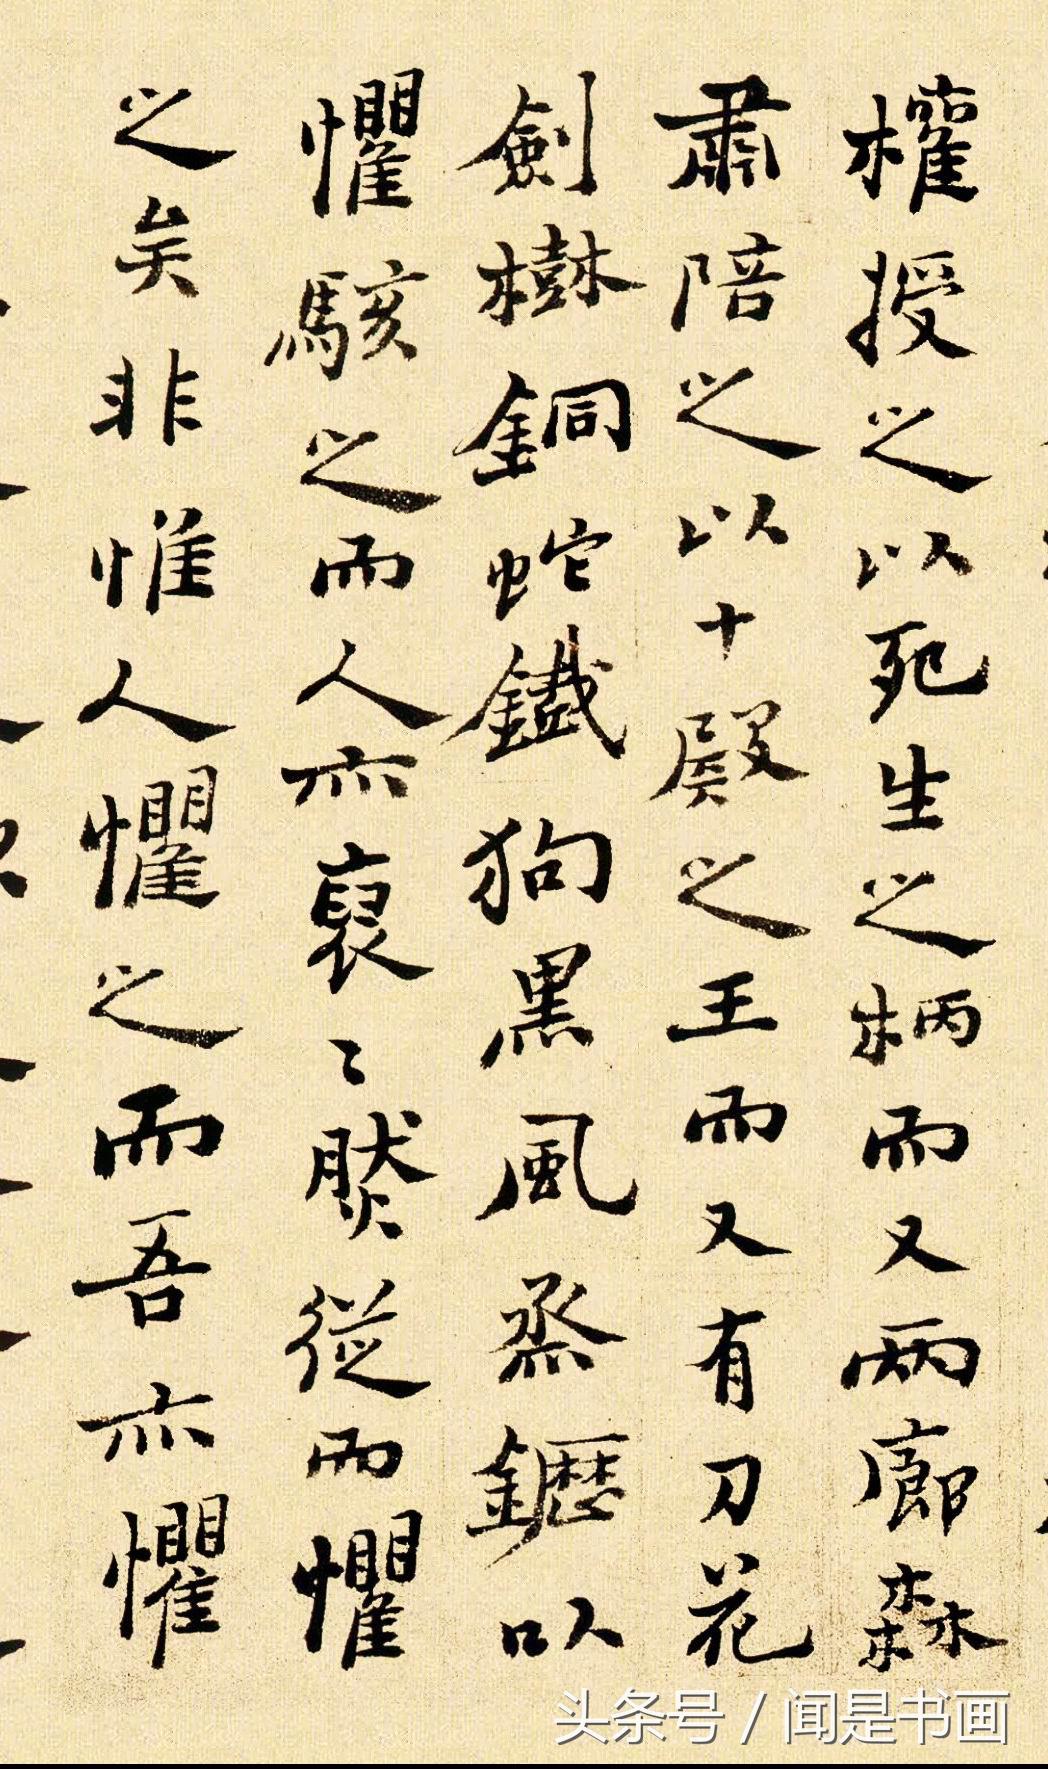 權授之以死生之柄而又兩廊森
肅陪之以十殿之王而又有刀花
劍樹銅蛇鐵狗黑風烝鑩以
懼駭之而人亦裒〻然從而懼
之矣非惟人懼之而吾亦懼
头条号 / 闻是书画